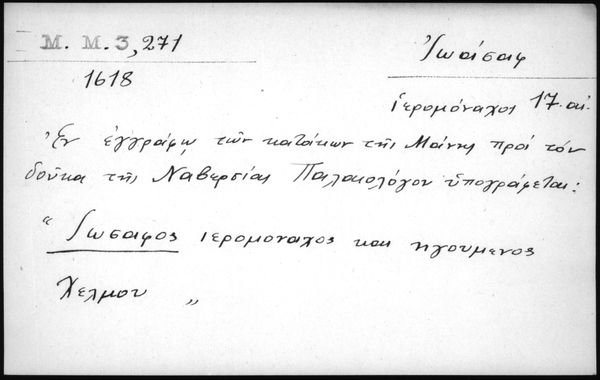 M. M. 3, 271
1618
Ἰωάσαφ
ἱερομόναχος 17. αἰ.
Ἐν ἐγγράφῳ τῶν κατοίκων τῆς Μάνης πρὸς τὸν
δοῦκα τῆς Ναβερσίας Παλαιολόγον ὑπογράφεται:
“ Ἰωσαφος ιερομοναχος και ηγουμενος
Χελμου „